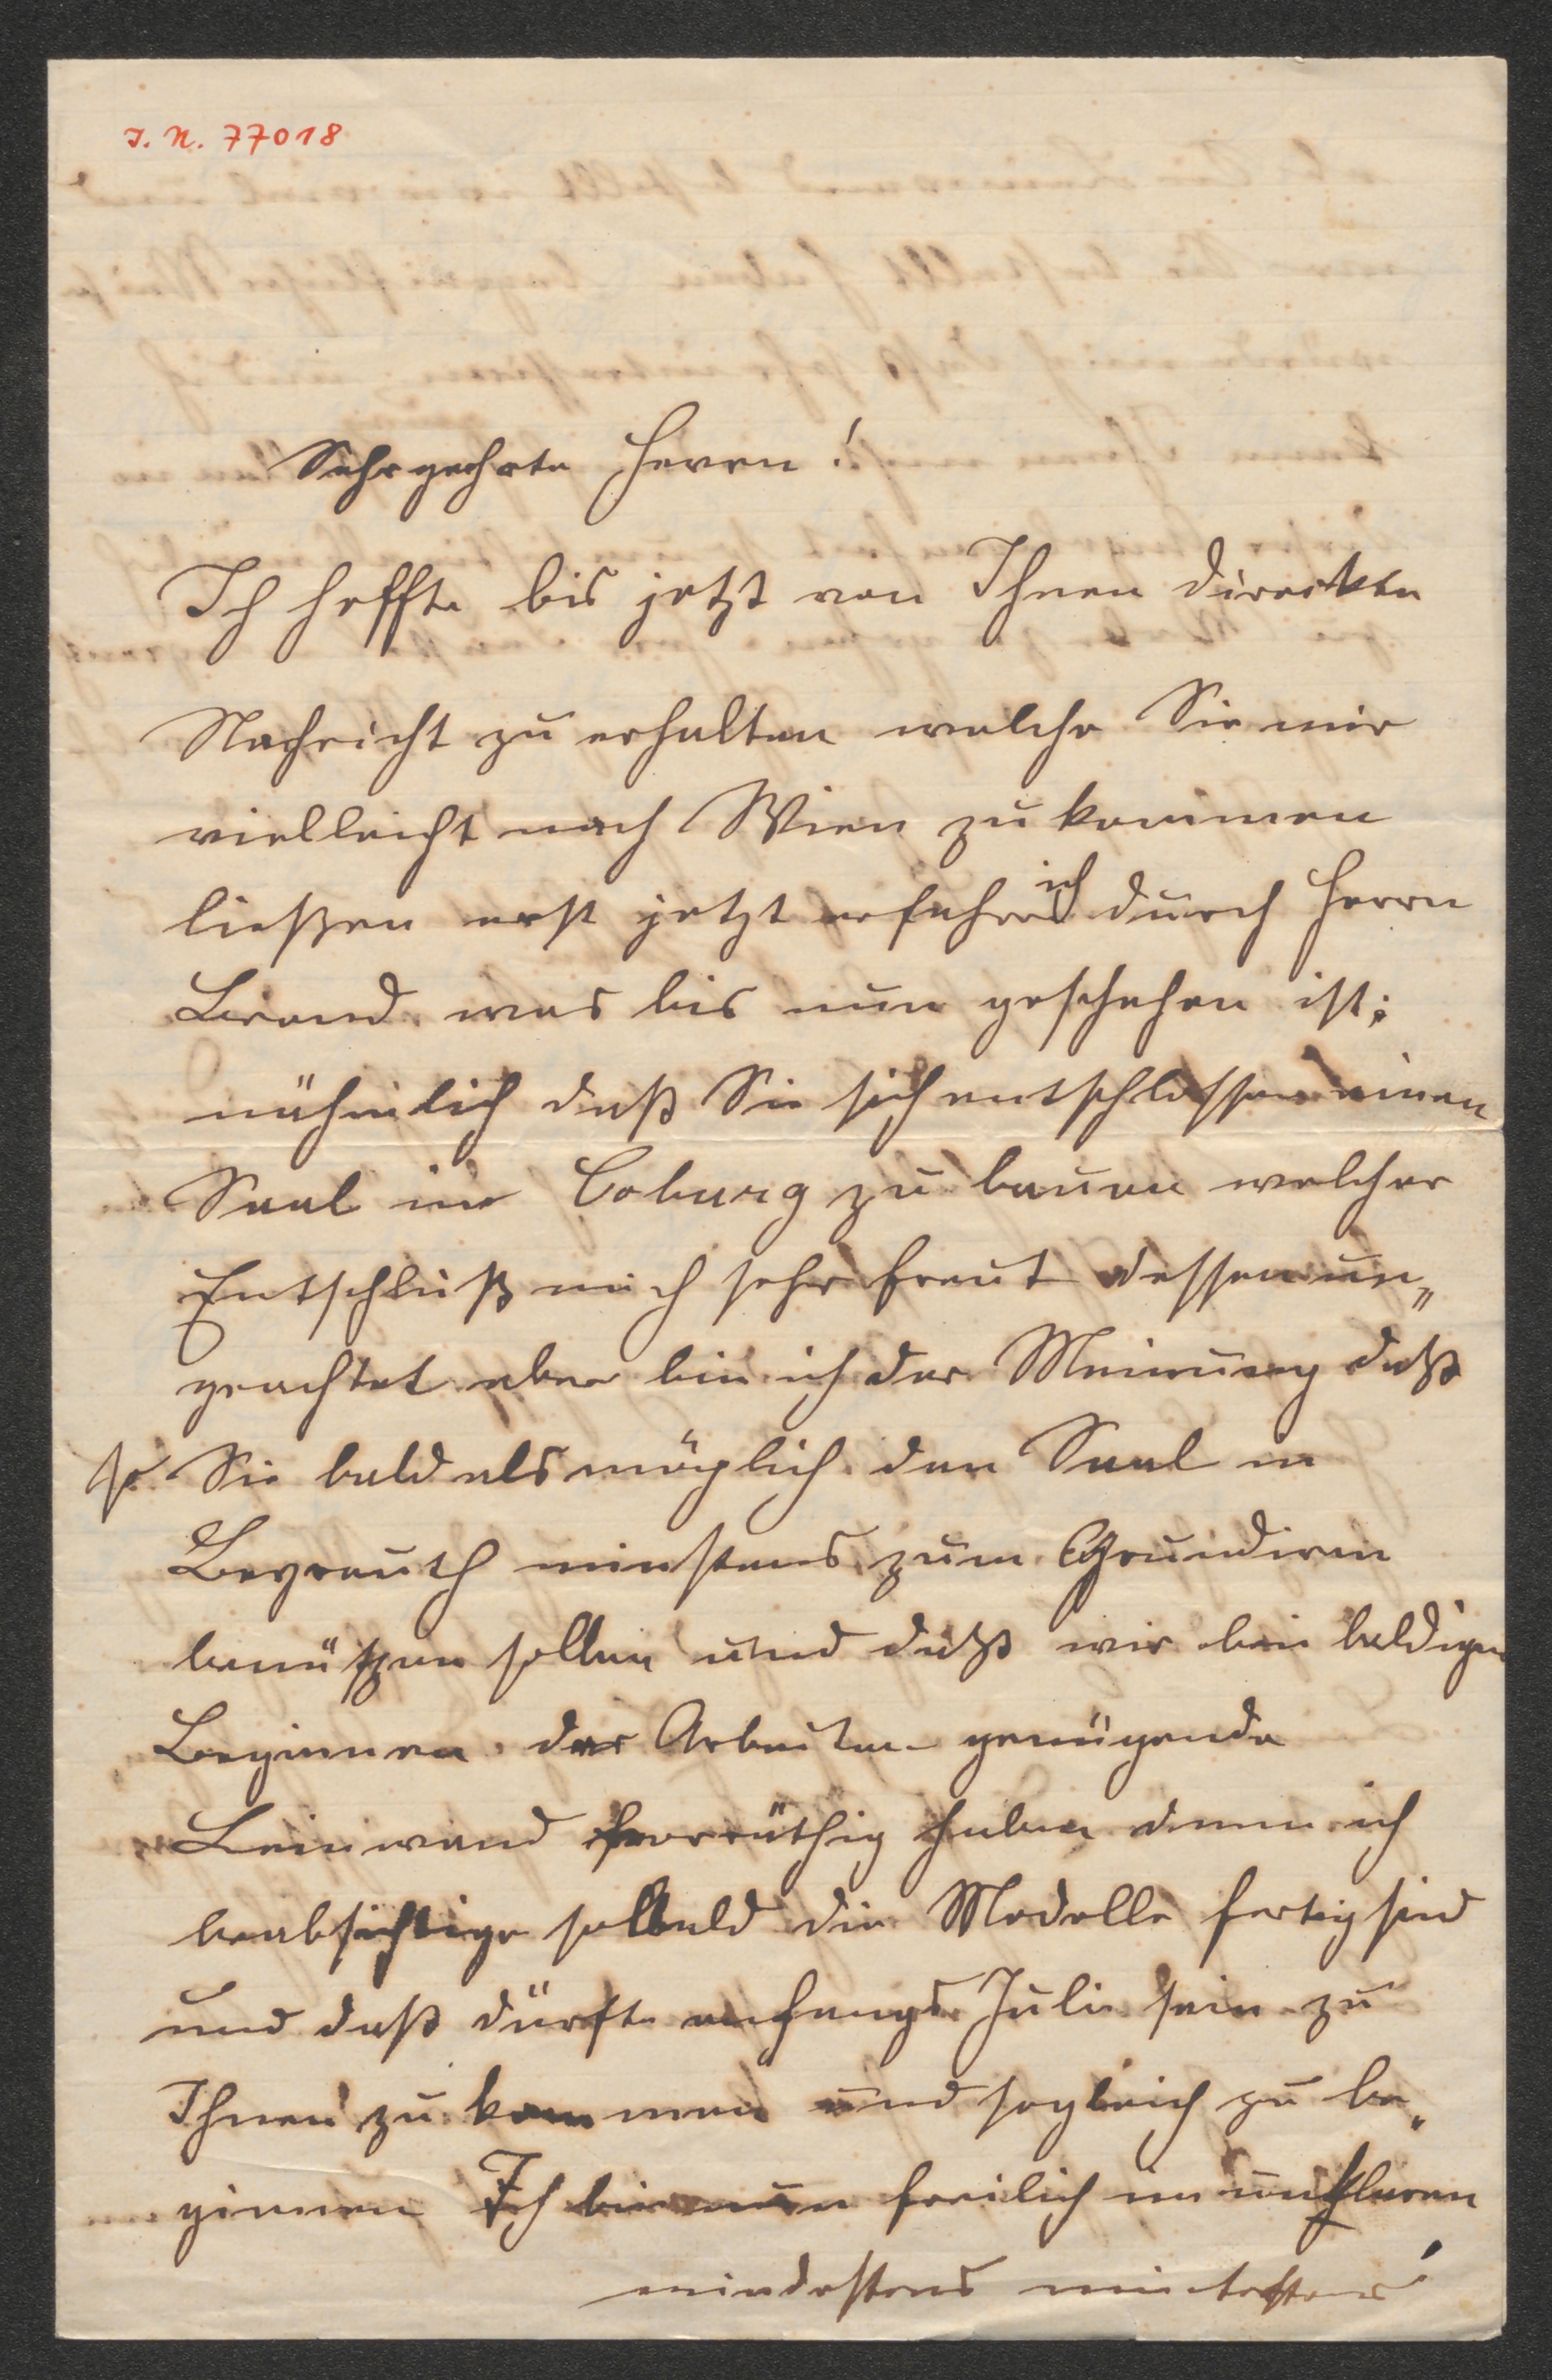 I. N. 77018
Sehrgeehrte Herren!
Ich hoffte bis jetzt von Ihnen direckte
Nachricht zu erhalten welche Sie mir
vielleicht nach Wien zukommen
ließen erst jetzt erfahre ich durch Herrn
Brand was bis nun geschehen ist;
nähmlich daß Sie sich entschlossen einen
Saal in Coburg zu bauen welcher
Entschluß mich sehr freut dessenun„
geachtet aber bin ich der Meinung daß
so Sie bald als möglich den Saal in
Beyreuth minstens zum Grundiren
benützen sollen und daß wir bei baldigen
Beginnen der Arbeiten genügende
Leinwand vorräthig haben denn ich
beabsichtige sobald die Modelle fertig sind
und daß dürfte anfangs Juli sein zu
Ihnen zu kommen und sogleich zu be„
ginnen Ich bin nun freilich im unklaren
mindestens